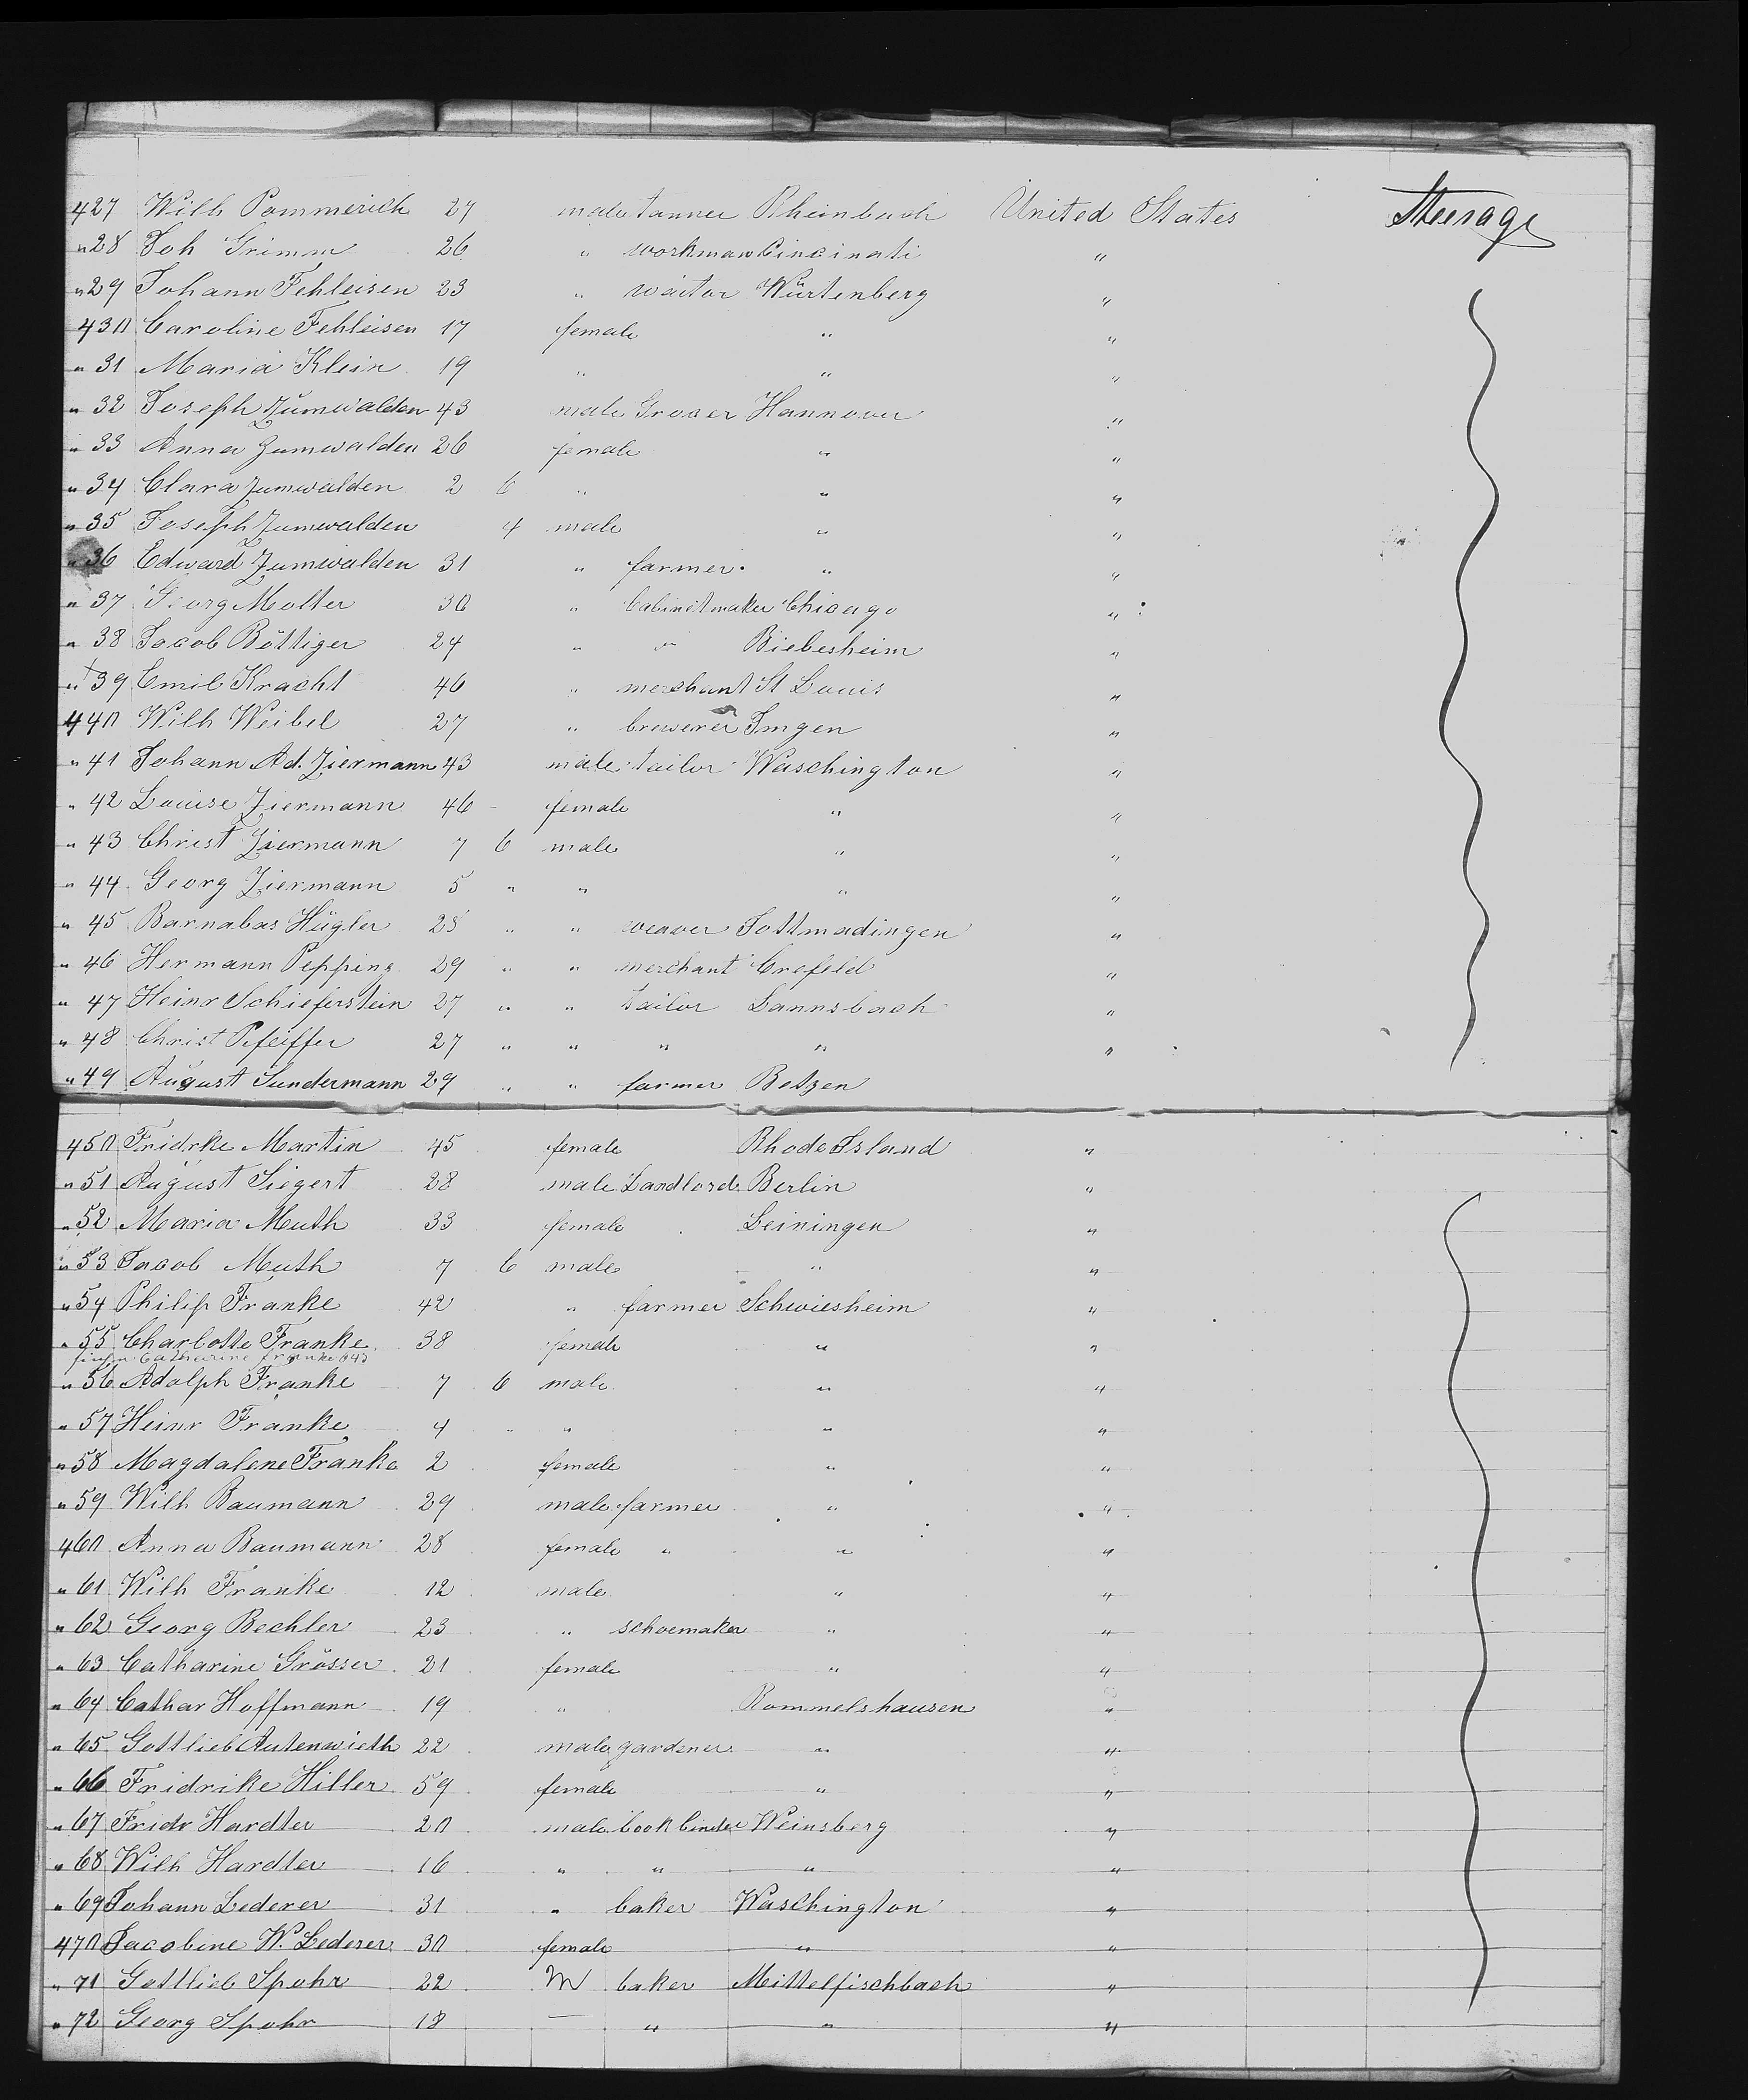 427 Wilh Pommerich 27 male tanner Rheinbach United States Steerage
" 28 Joh Grimm 26 " workman Cincinati "
" 29 Johann Fehleisen 23 " waitor Würtenberg "
430 Caroline Fehleisen 17 female " "
" 31 Maria Klein 19 " " "
" 32 Joseph Zumwalden 43 male Grocer Hannover "
" 33 Anna Zumwalden 26 female " "
" 34 Clara Zumwalden 2 6 " " "
" 35 Joseph Zumwalden 4 male " "
" 36 Edward Zumwalden 31 " farmer " "
" 37 Georg Molter 30 " Cabinetmaker Chicago "
" 38 Jacob Böttiger 24 " " Biebesheim "
" 39 Emil Kracht 46 " merchant St Louis "
440 Wilh Weibel 27 " brewerer Imgen "
" 41 Johann Ad. Ziermann 43 male tailor Waschington "
" 42 Louise Ziermann 46 female " "
" 43 Christ Ziermann 7 6 male " "
" 44 Georg Ziermann 5 " " " "
" 45 Barnabas Hügler 25 " " weaver Gottmadingen "
" 46 Hermann Pepping 29 " " merchant Crefeld "
" 47 Heinr Schieferstein 27 " " tailor Lannsbach "
" 48 Christ Pfeiffer 27 " " " " "
" 49 August Sundermann 29 " " farmer Betzen
450 Fridrke Martin 45 female Rhode Island "
" 51 August Siegert 28 male Landlord Berlin "
" 52 Maria Muth 33 female Leiningen "
" 53 Jacob Muth 7 6 male " "
" 54 Philip Franke 42 " farmer Schwiesheim "
" 55 Charlotte Franke 38 female " "
Catharine Franke
" 56 Adolph Franke 7 6 male " "
" 57 Heinr Franke 4 " " " "
" 58 Magdalene Franke 2 female " "
" 59 Wilh Baumann 29 male farmer " "
460 Anna Baumann 28 female " " "
" 61 Wilh Franke 12 male " "
" 62 Georg Bechler 23 " schoemaker " "
" 63 Catharine Grösser 21 female " "
" 64 Cathar Hoffmann 19 " Rommelshausen "
" 65 Gottlieb Autenwieth 22 male gardener " "
" 66 Fridrike Hiller 59 female " "
" 67 Fridr Hardter 20 male bookbinder Weinsberg "
" 68 Wilh Hardter 16 " " " "
" 69 Johann Lederer 31 " baker Waschington "
470 Jacobine W. Lederer 30 female " "
" 71 Gottlieb Spohr 22 M baker Mittelfischbach "
" 72 Georg Spohr 18 — " " "